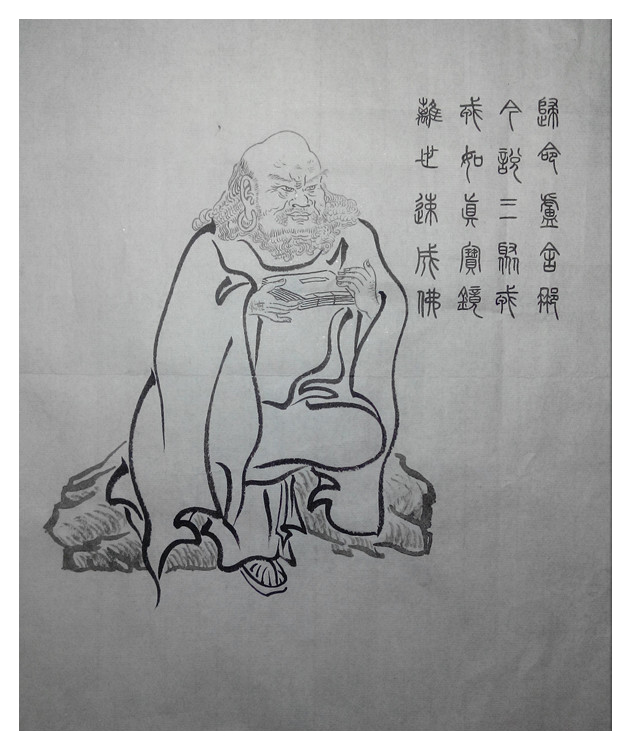 歸命盧舍那
今說三聚戒
戒如眞寶鏡
離世速成佛